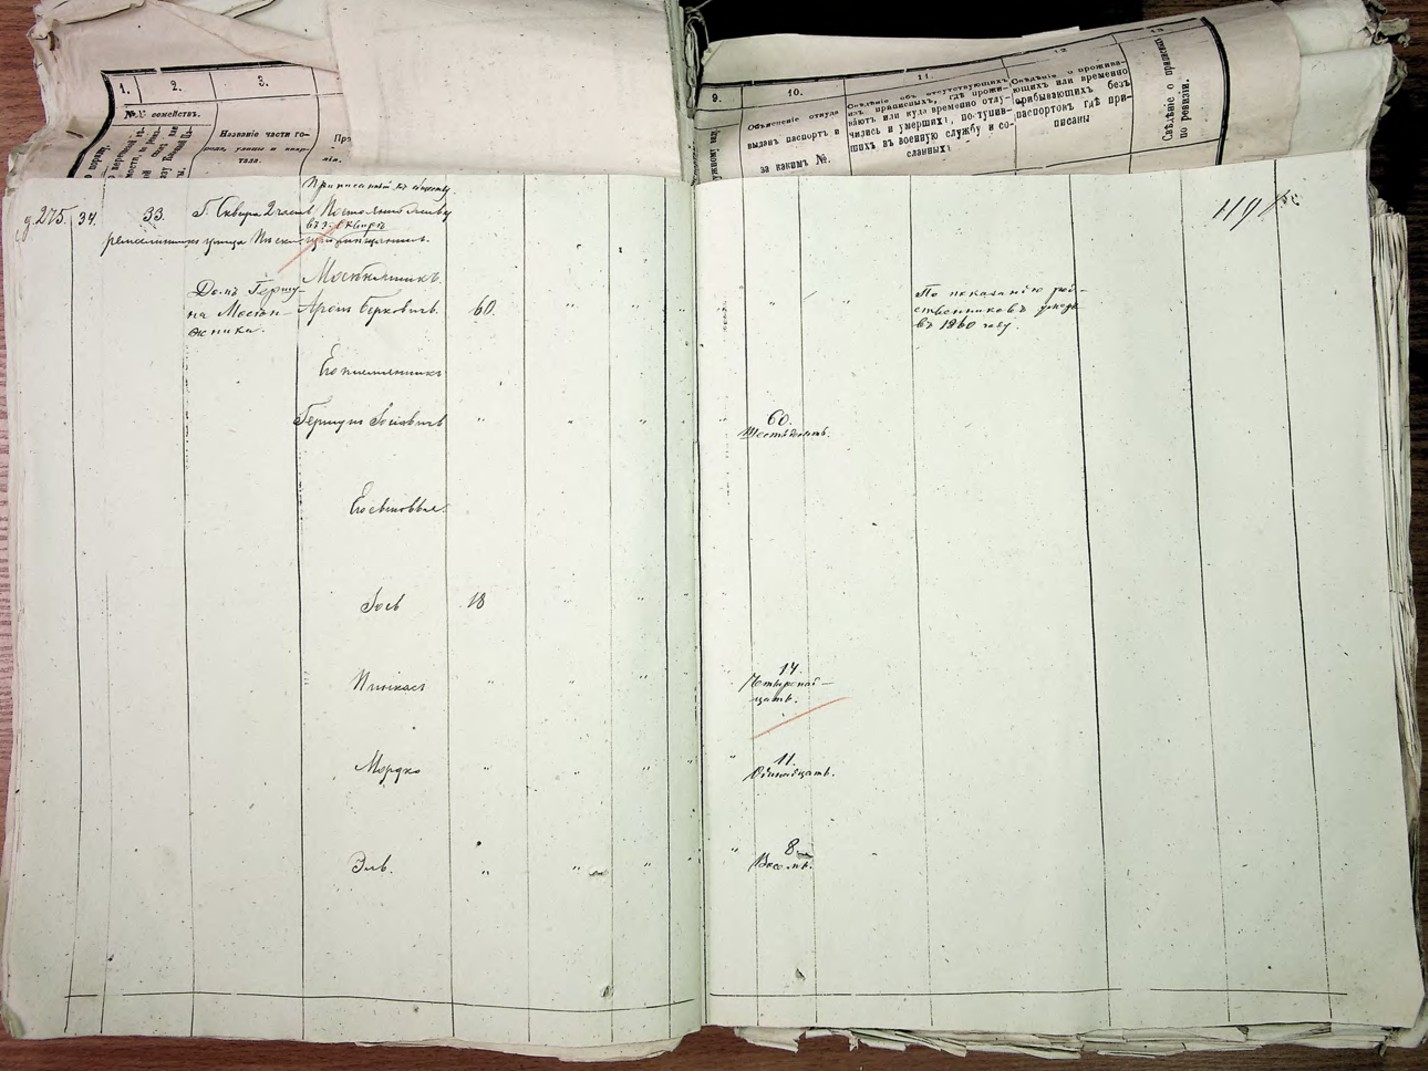 1.
2.
3.
№№ семействъ.
Названіе части го-
рода, улицы и квар-
тала.
9.
10.
11.
12
13
Объясненіе откуда
выданъ паспортъ и
за какимъ №.
Свѣдѣнія объ отсутствующихъ
изъ приписныхъ, гдѣ прожи-
ваютъ или куда временно отлу-
чились и умершихъ, поступив-
шихъ въ военную службу и со-
сланныхъ
Свѣдѣнія о прожива-
ющихъ или временно
прибывающихъ безъ
паспортовъ гдѣ при-
писаны
Свѣдѣніе о припискѣ
по ревизіи.
Приписанный къ обществу
275. 34. 33. Г. Сквира 2 части Постоянно
въ г. Сквирѣ
улица
Мостовлянникъ
Домъ Гершу-
на Мостов-
Аронъ Берковичъ. 60. " " " " "
По показанію род-
ственниковъ умеръ
въ 1860 году.
119
Его племянникъ
Гершунъ Іосіовичъ " " " 60.
Шестьдесятъ.
Его сыновья:
Іось 18 " "
Пинкасъ " " " " 14.
Четырнад-
цать.
Мордко " " " " 11.
Одинадцать.
Эль. " " " " 8.
Восемь.